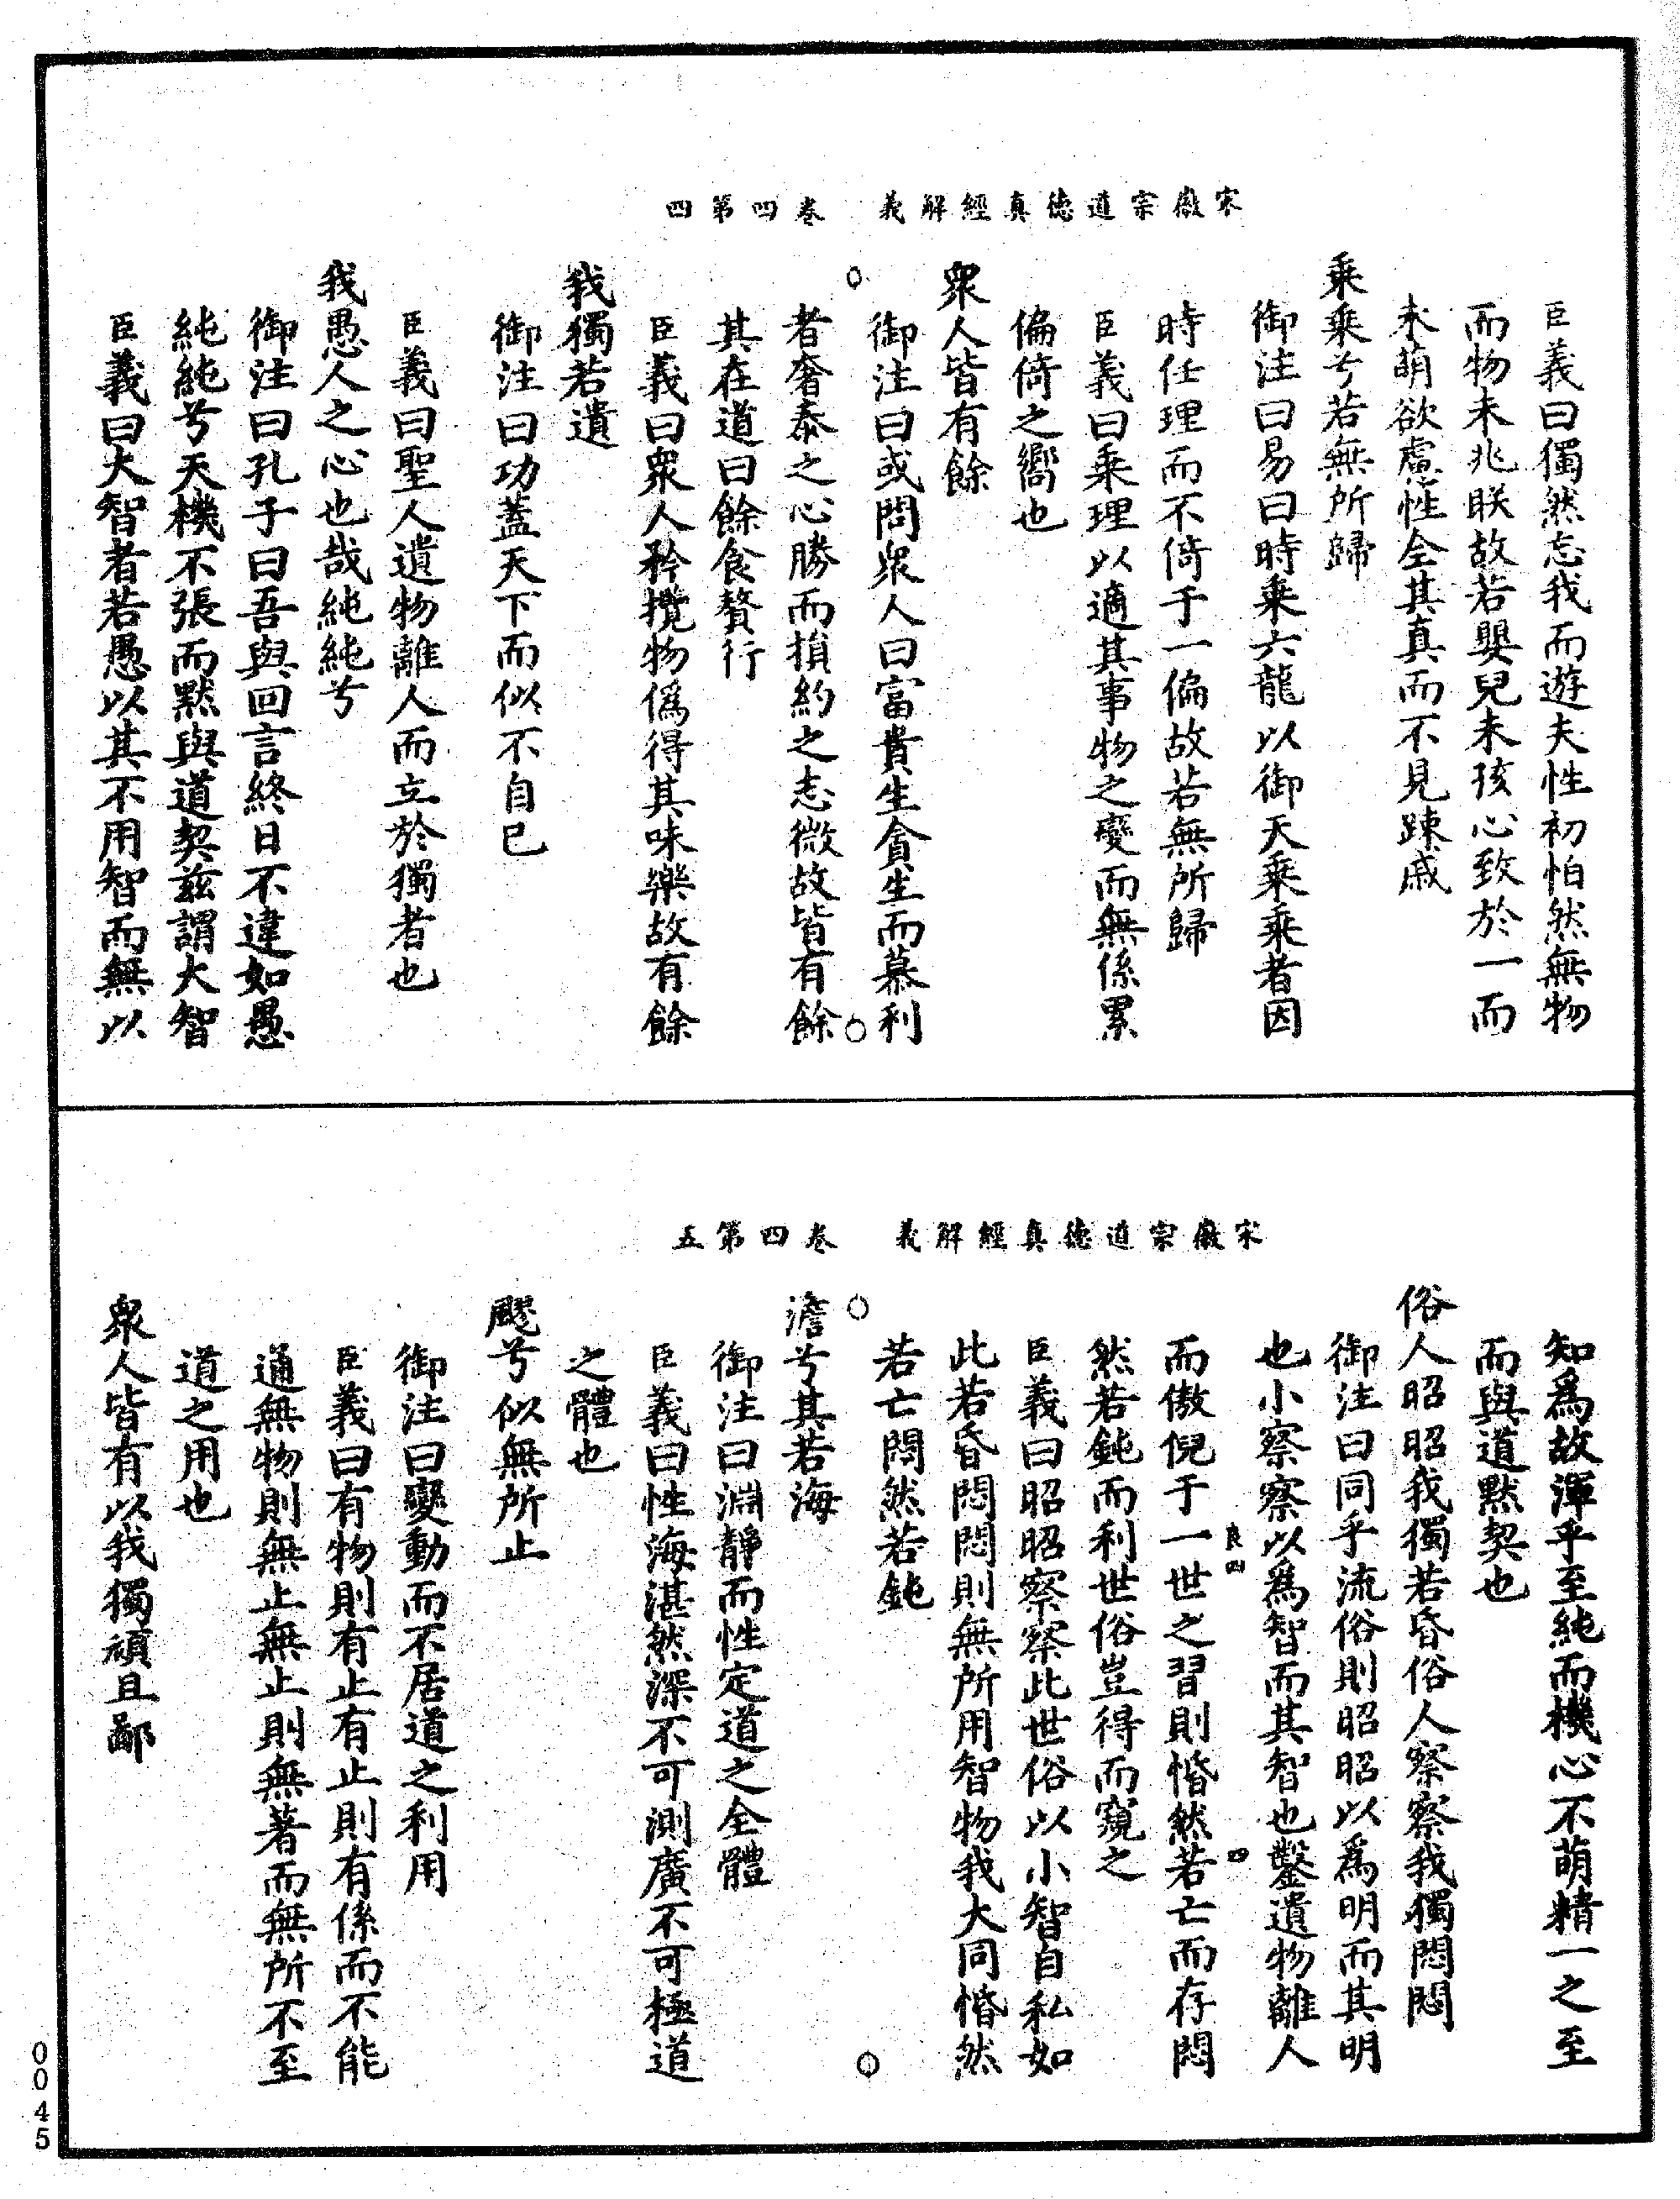 宋徽宗道德真經解義　卷四第四
臣義曰獨然忘我而遊夫性初怕然無物
而物未兆眹故若嬰兒未孩心致於一而
未萌欲慮性全其真而不見踈戚
乘乘兮若無所歸
御注曰易曰時乘六龍以御天乘乘者因
時任理而不倚于一偏故若無所歸
臣義曰乘理以適其事物之變而無係累
偏倚之嚮也
衆人皆有餘
御注曰或問衆人曰富貴生貪生而慕利
者奢泰之心勝而損約之志微故皆有餘
其在道曰餘食贅行
臣義曰衆人矜攬物僞得其味樂故有餘
我獨若遺
御注曰功蓋天下而似不自已
臣義曰聖人遺物離人而立於獨者也
我愚人之心也哉純純兮
御注曰孔子曰吾與回言終日不違如愚
純純兮天機不張而默與道契兹謂大智
臣義曰大智者若愚以其不用智而無以
宋徽宗道德真經解義　卷四第五
知爲故渾乎至純而機心不萌精一之至
而與道默契也
俗人昭昭我獨若昏俗人察察我獨悶悶
御注曰同乎流俗則昭昭以爲明而其明
也小察察以爲智而其智也鑿遺物離人
良四　四
而傲倪于一世之習則惛然若亡而存悶
然若鈍而利世俗豈得而窺之
臣義曰昭昭察察此世俗以小智自私如
此若昏悶悶則無所用智物我大同惛然
若亡悶然若鈍
澹兮其若海
御注曰淵靜而性定道之全體
臣義曰性海湛然深不可測廣不可極道
之體也
飂兮似無所止
御注曰變動而不居道之利用
臣義曰有物則有止有止則有係而不能
通無物則無止無止則無著而無所不至
道之用也
衆人皆有以我獨頑且鄙
0045